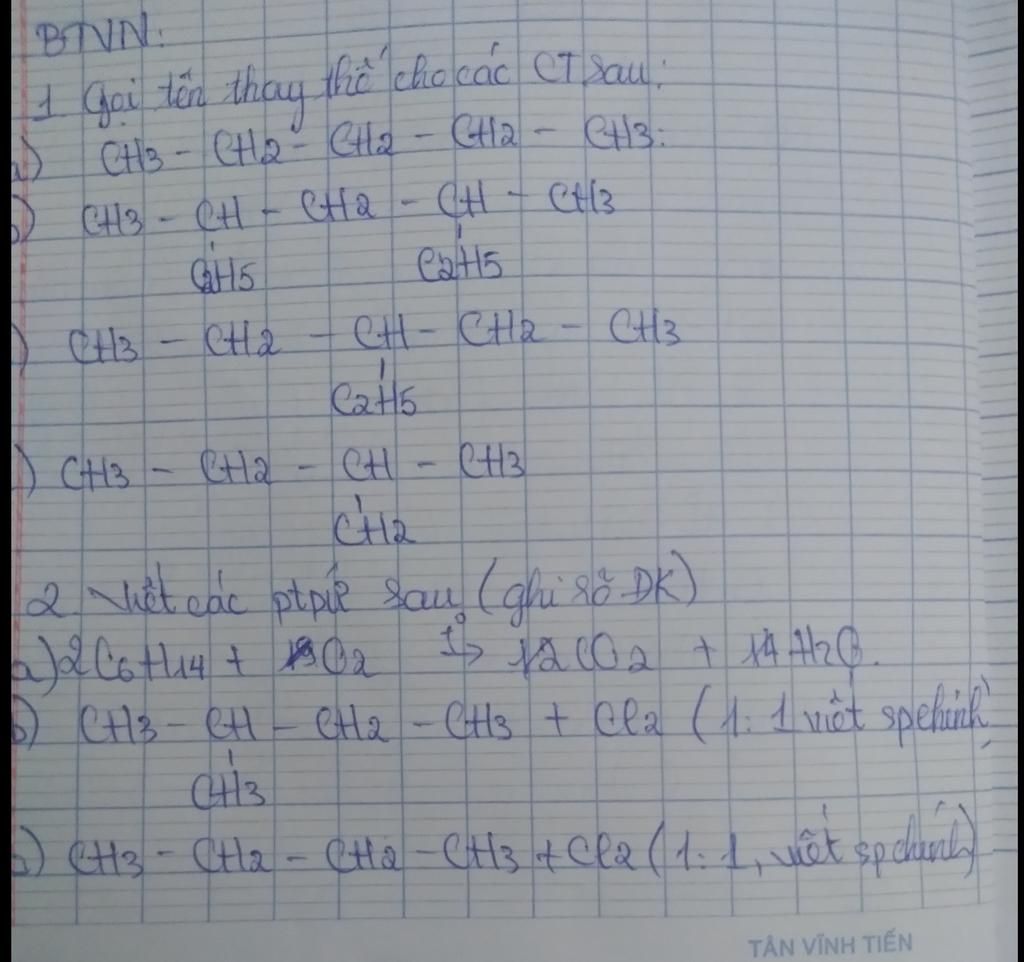 BTVN:
1 Gọi tên thay thế cho các CT sau:
a) CH3 - CH2 - CH2 - CH2 - CH3:
b) CH3 - CH - CH2 - CH - CH3
C2H5 C2H5
) CH3 - CH2 - CH - CH2 - CH3
C2H5
) CH3 - CH2 - CH - CH3
CH2
2 Viết các ptpứ sau (ghi rõ ĐK)
a) 2C6H14 + 19O2 t°-> 12CO2 + 14H2O.
b) CH3 - CH - CH2 - CH3 + Cl2 (1:1 viết spchính)
CH3
) CH3 - CH2 - CH2 - CH3 + Cl2 (1:1, viết spchính)
TÂN VĨNH TIẾN